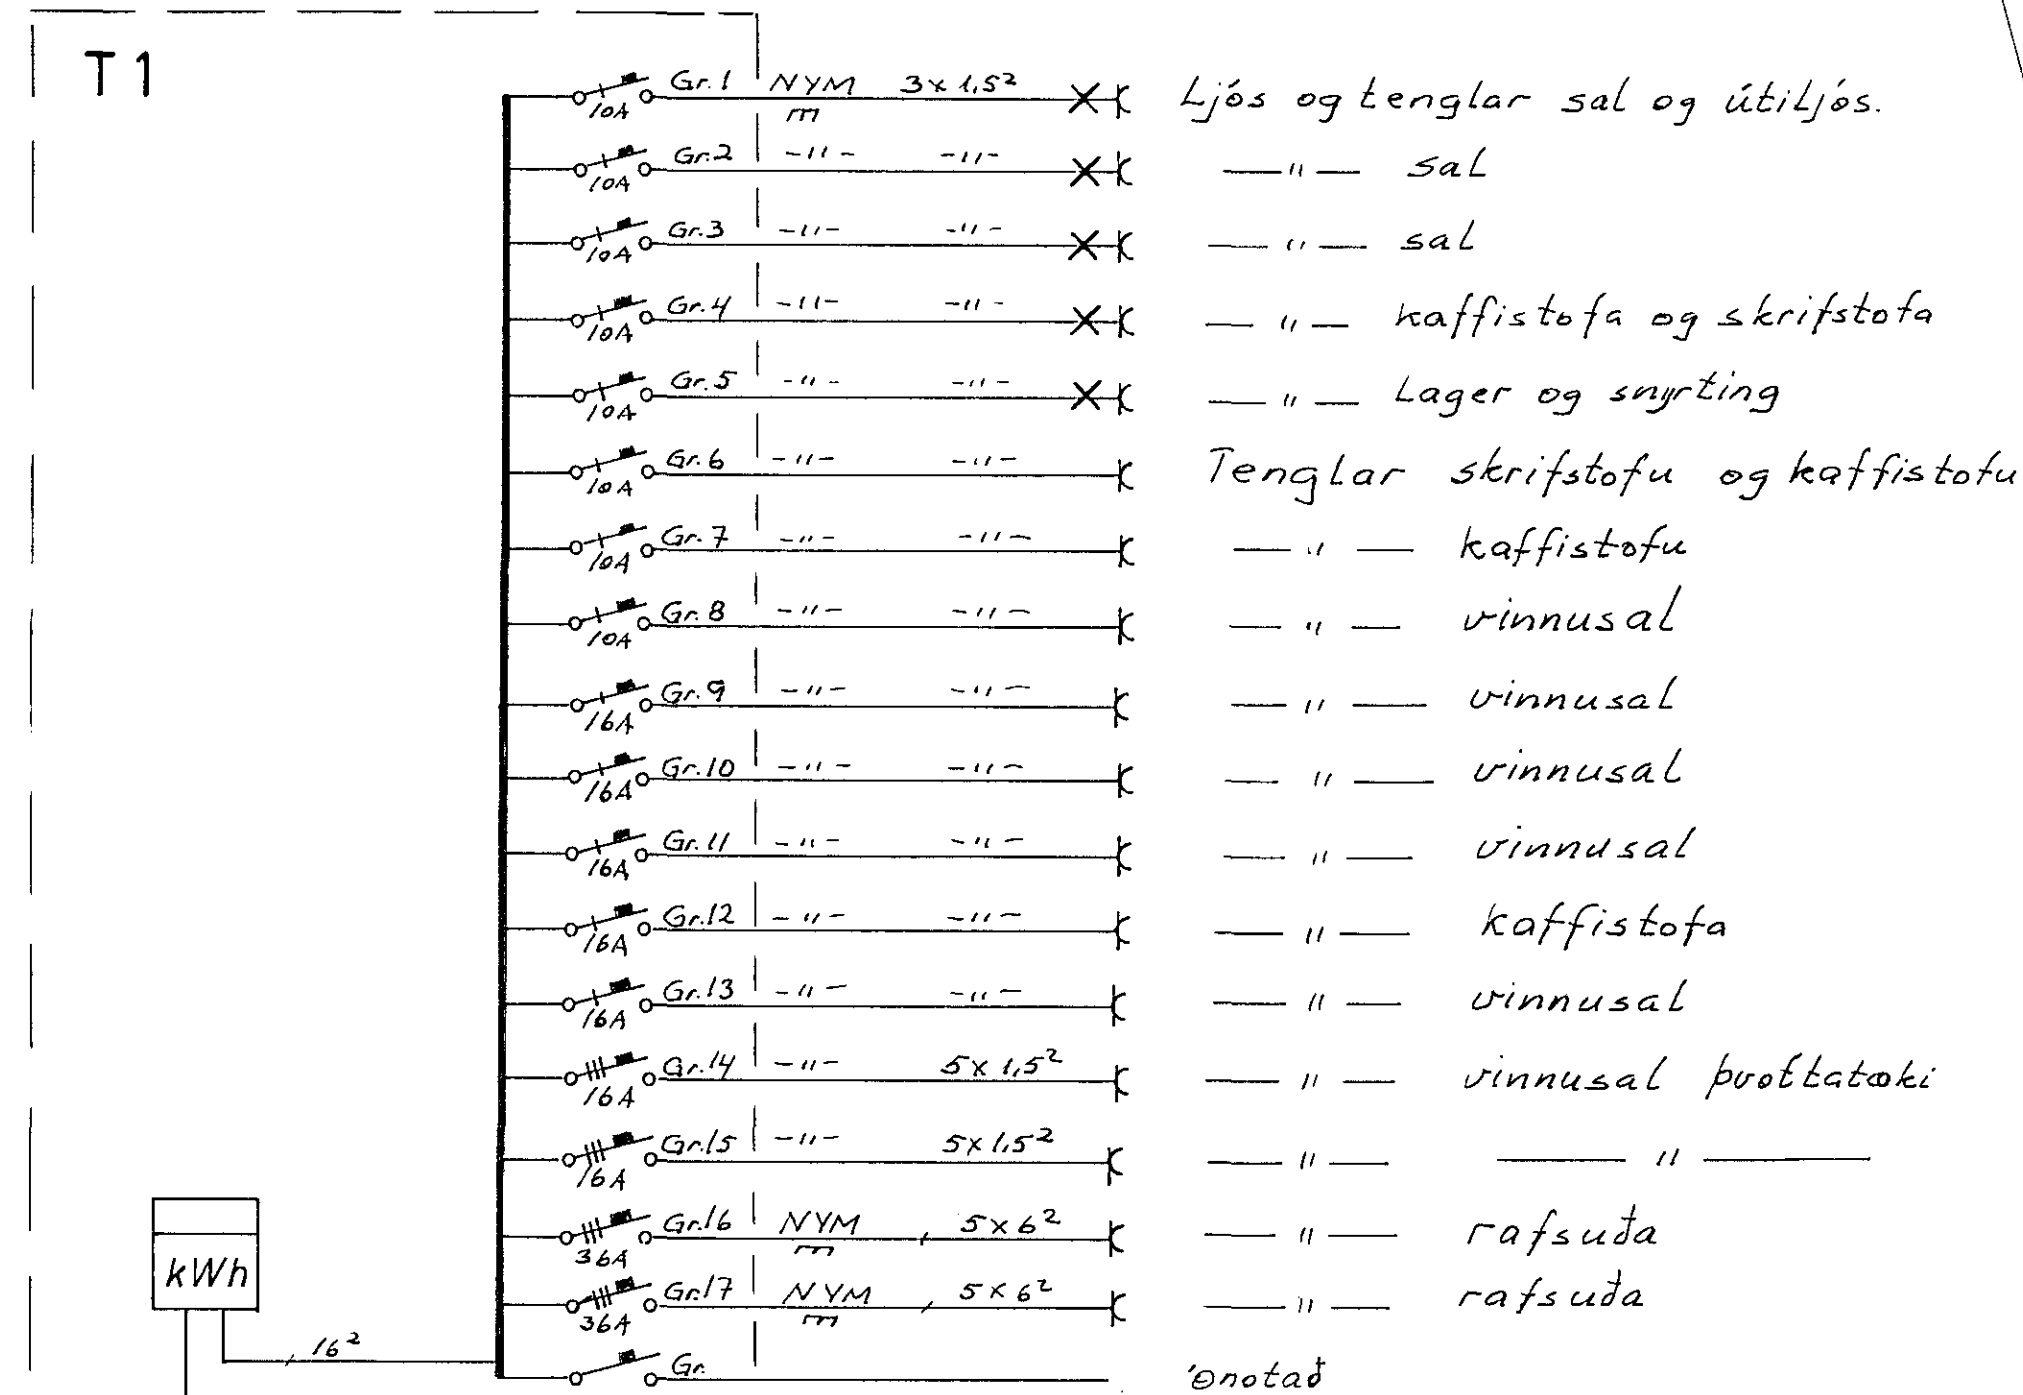 T1
Gr.1 NYM 3x1,5² Ljós og tenglar sal og útiljós.
10A m
Gr.2 -"- -"- -"- sal
10A
Gr.3 -"- -"- -"- sal
10A
Gr.4 -"- -"- -"- kaffistofa og skrifstofa
10A
Gr.5 -"- -"- -"- Lager og snyrting
10A
Gr.6 -"- -"- Tenglar skrifstofu og kaffistofu
10A
Gr.7 -"- -"- -"- kaffistofu
10A
Gr.8 -"- -"- -"- vinnusal
10A
Gr.9 -"- -"- -"- vinnusal
16A
Gr.10 -"- -"- -"- vinnusal
16A
Gr.11 -"- -"- -"- vinnusal
16A
Gr.12 -"- -"- -"- kaffistofa
16A
Gr.13 -"- -"- -"- vinnusal
16A
Gr.14 -"- 5x1,5² -"- vinnusal þvottatæki
16A
Gr.15 -"- 5x1,5² -"- -"-
16A
Gr.16 NYM 5x6² -"- rafsuða
36A m
kWh
Gr.17 NYM 5x6² -"- rafsuða
36A m
16²
Gr. Ónotað